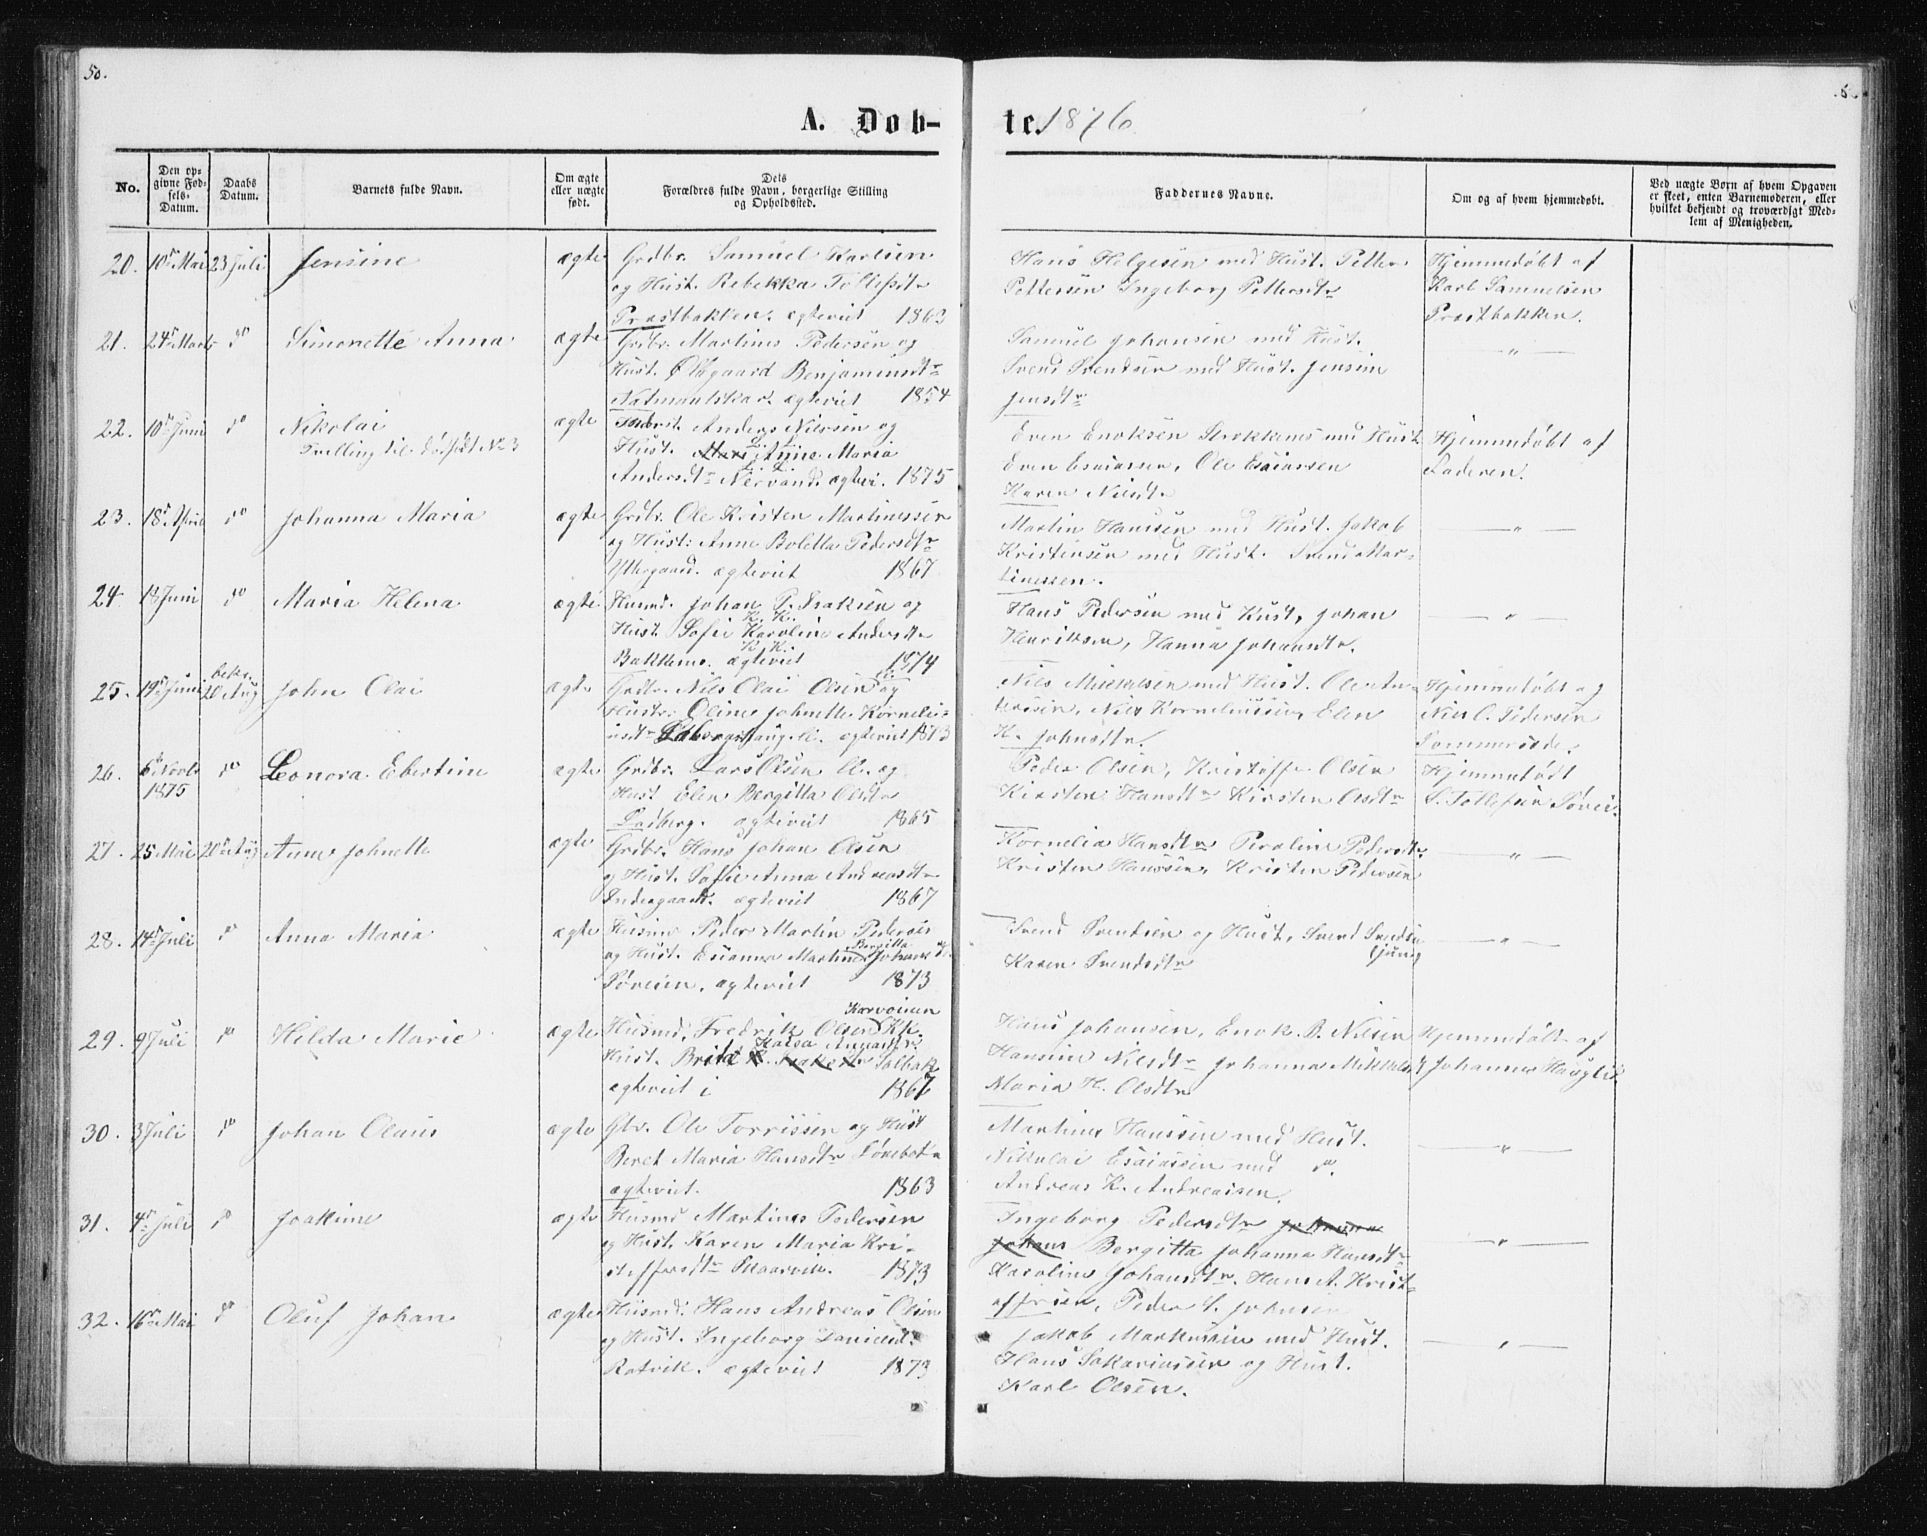 50.
A. Døb-
te. 1876
No.
Den op-
givne Fød-
sels-
Datum.
Daabs
Datum.
Barnets fulde Navn.
Om ægte
eller uægte
født.
Dets
Forældres fulde Navn, borgerlige Stilling
og Opholdssted.
Faddernes Navne.
Om og af hvem hjemmedøbt.
Ved uægte Børn af hvem Opgaven
er skeet, enten Barnemoderen, eller
hvilket bekjendt og troværdigt Med-
lem af Menigheden.
20. 10de Mai 23 Juli Jensine ægte Grdbr. Samuel Karlsen
og Hust. Rebekka Tollefsdtr
Præstbakken. ægteviet 1863
Hans Helgesen med Hust. Petter
Pettersen Ingeborg Pettersdtr
Hjemmedøbt af
Karl Samuelsen
Præstbakken.
21. 24de Marts do Simonette Anna ægte Grdbr. Martinus Pedersen og
Hust. Øllegaard Benjaminsdtr
ægteviet 1854
Samuel Johansen med Hust.
Svend Svendsen med Hust. Jensine
Jensdtr
— " —
22. 10de Juni do Nikolai ægte Anders Nilsen og
Tvilling til dødfødt No 3
Hust. Anne Maria
Andersdtr Nervand. ægtev. 1875
Even Enoksen med Hust
Even Esaiassen, Ole Esaiassen
Karen Nilsdtr
Hjemmedøbt af
Faderen.
23. 18de April do Johanna Maria ægte Grdbr. Ole Kristen Martinussen
og Hust: Anne Boletta Pedersdtr
Yttergaard. ægteviet 1867
Martin Hanssen med Hust. Jakob
Kristensen med Hust. Svend Mar-
tinussen.
— " —
24. 18 Juni do Maria Helena ægte Husmd. Johan P. Isaksen og
K. K.
Hust. Sofie Karolin Andersdtr
K. K.
Bakkemo. ægteviet 1874
Hans Pedersen med Hust, Johan
Henriksen, Hanna Johannsdtr.
— " —
25. 19de Juni bekr. 20 Aug John Olai ægte Grdbr. Nils Olai Olsen og
Hustr: Oline Johnette Korneli-
usdtr ægteviet 1873
Nils Mikkelsen med Hust. Ole An-
dersen, Nils Korneliussen, Elen
K. Johnsdtr.
Hjemmedøbt af
Niel C. Pedersen
Sommersæde.
26. 6te Novbr
1875 do Leonora Ebertine ægte Grdbr. Lars Olsen og
Hust Elen Bergitta Olsdtr
Ladberg. ægteviet 1865
Peder Olsen, Kristoffer Olsen
Kirsten Hansdtr Kirsten Olsdtr
Hjemmedøbt
S. Tollefsen
27. 25 Mai 20de Aug Anne Johnette ægte Grdbr. Hans Johan Olsen
og Hust. Sofie Anna Andreasdtr
Indergaard. ægteviet 1867
Kornelia Hansdtr Peroline Pedersdtr
Kristen Hanssen, Kristen Pedersen
— " —
28. 14de Juli do Anna Maria ægte Husmd Peder Martin Pedersen
Bergitta
og Hust. Esianna Martine Johansdtr
Søveien, ægteviet 1873
Svend Svendsen og Hust, Svend Svendsen
(jung
Karen Svendsdtr
— " —
29. 9 Juli do Hilda Marie ægte Husmd. Fredrik Olsen Kk.
Hust. Brita Solbak
ægteviet i 1867
Hans Johansen, Enok B. Nilsen
Hansine Nilsdtr Johanna Mikkelsdtr
Maria H. Olsdtr
Hjemmedøbt af
Johannes
30. 3 Juli do Johan Olaus ægte Gbr. Ole Torrissen og Hust
Beret Maria Hansdtr
ægteviet. 1863
Martinus Hanssen med Hust.
Nikolai Esaiassen med do.
Andreas K. Andreassen.
— " —
31. 4de Juli do Joakime ægte Husmd Martinus Pedersen
og Hust. Karen Maria Kri-
stoffersdtr Skaarvik. 1873
Ingeborg Pedersdtr
Bergitta Johanna Hansdtr
Karoline Johansdtr. Hans A. Krist-
offersen, Peder S. Johnsen
— " —
32. 16de Mai do Oluf Johan ægte Husmd. Hans Andreas Olsen
og Hust. Ingeborg Danielsdtr
Rotvik. ægteviet 1873
Jakob Markussen med Hust.
Hans Sakariassen og Hust.
Karl Olsen.
— " —